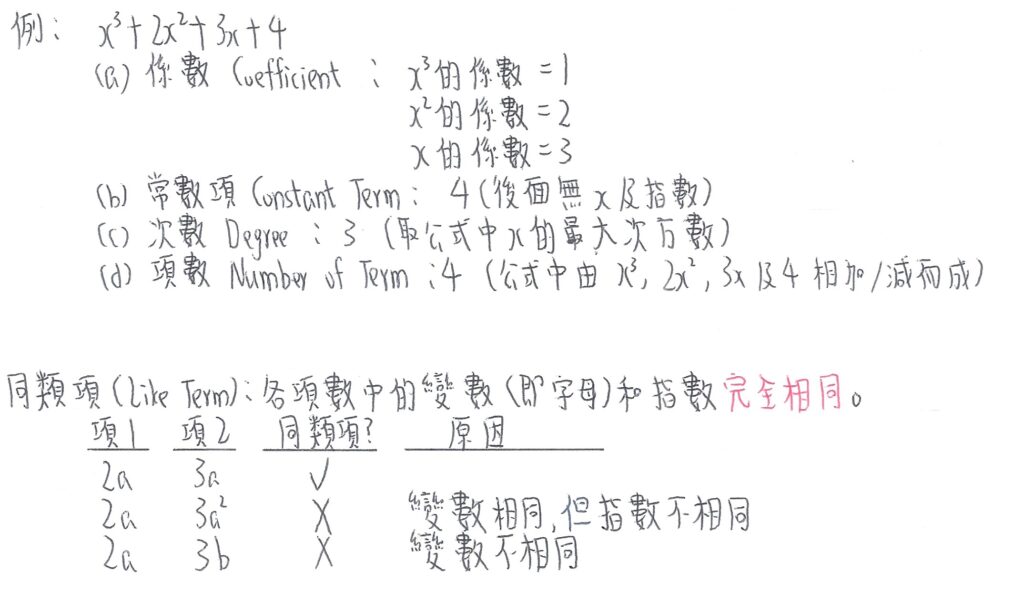 例： x³+2x²+3x+4
(a) 係數 Coefficient ： x³的係數=1
x²的係數=2
x的係數=3
(b) 常數項 Constant Term： 4(後面無x及指數)
(c) 次數 Degree ：3 (取公式中x的最大次方數)
(d) 項數 Number of Term ：4 (公式中由 x³, 2x², 3x及4相加/減而成)
同類項(Like Term)：各項數中的變數(即字母)和指數完全相同。
項1 項2 同類項? 原因
2a 3a ✓
2a 3a² X 變數相同,但指數不相同
2a 3b X 變數不相同